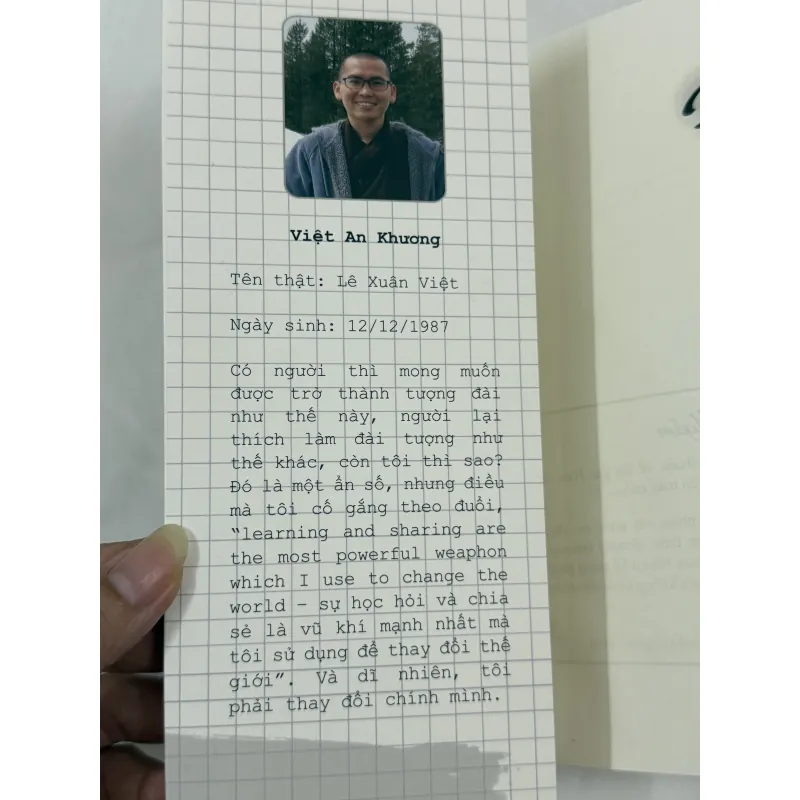 Việt An Khương
Tên thật: Lê Xuân Việt
Ngày sinh: 12/12/1987
Có người thì mong muốn
được trở thành tượng đài
như thế này, người lại
thích làm đài tượng như
thế khác, còn tôi thì sao?
Đó là một ẩn số, nhưng điều
mà tôi cố gắng theo đuổi,
“learning and sharing are
the most powerful weaphon
which I use to change the
world – sự học hỏi và chia
sẻ là vũ khí mạnh nhất mà
tôi sử dụng để thay đổi thế
giới”. Và dĩ nhiên, tôi
phải thay đổi chính mình.